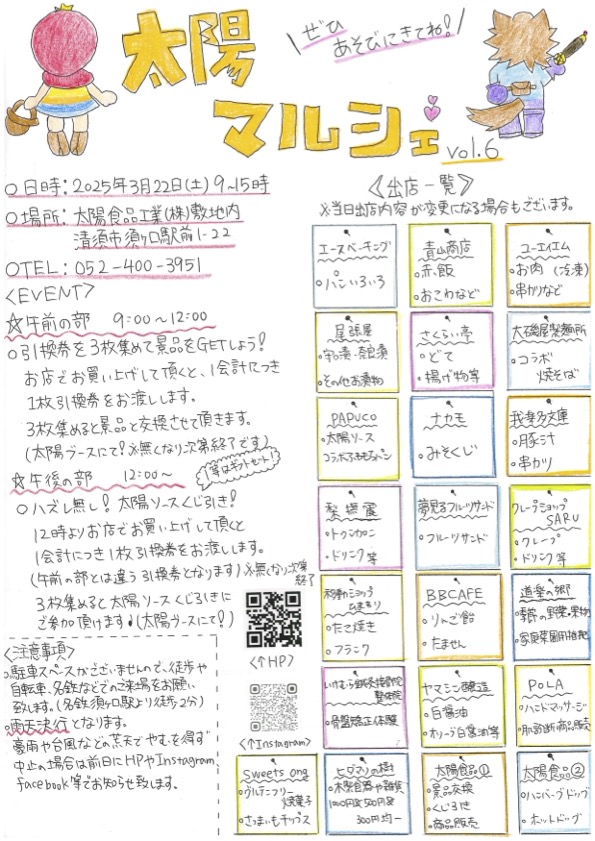 太陽
マルシェ
vol.6
ぜひ
あそびにきてね!
○日時:2025年3月22日(土) 9~15時
○場所:太陽食品工業(株)敷地内
清須市須ケ口駅前1-22
○TEL:052-400-3951
<EVENT>
☆午前の部 9:00~12:00
○引換券を3枚集めて景品をGETしよう!
お店でお買い上げして頂くと、1会計につき
1枚引換券をお渡します。
3枚集めると景品と交換させて頂きます。
(太陽ブースにて!※無くなり次第終了です)
☆午後の部 12:00~
1等はギフトセット!
○ハズレ無し!太陽ソースくじ引き!
12時よりお店でお買い上げして頂くと
1会計につき1枚引換券をお渡します。
(午前の部とは違う引換券となります)※無くなり次第
終了
3枚集めると太陽ソースくじ引きに
ご参加頂けます♪(太陽ブースにて!)
<注意事項>
○駐車スペースがございませんので、徒歩や
自転車、名鉄などでのご来場をお願い
致します。(名鉄須ケ口駅より徒歩2分)
○雨天決行となります。
豪雨や台風などの荒天でやむを得ず
中止の場合は前日にHPやInstagram、
facebook等でお知らせ致します。
<↑HP>
<↑Instagram>
《出店一覧》
※当日出店内容が変更になる場合もございます。
エースベーキング
○パンいろいろ
青山商店
○赤飯
○おこわなど
ユーエイエム
○お肉(冷凍)
○串カツなど
尾張屋
○守口漬・奈良漬
○その他お漬物
さくらい亭
○どて
○揚げ物等
大磯屋製麺所
○コラボ
焼そば
PAPUCO
○太陽ソース
ナカモ
○みそくじ
我楽多文庫
○豚汁
○串カツ
○トゥンカロン
○ドリンク等
夢見るフルーツサンド
○フルーツサンド
クレープショップ
SARU
○クレープ
○ドリンク等
ひまわり
○たこ焼き
○フランク
BBCAFE
○りんご飴
○たません
道楽の郷
○季節の野菜・果物
○家庭菜園用苗
いけむら鍼灸接骨院
整体院
○骨盤矯正体験
ヤマシン醸造
○白醤油
○オリーブ白醤油等
POLA
○ハンドマッサージ
○肌診断商品販売
Sweets ong
○ヴルテンフリー
焼菓子
○さつまいもチップス
ヒダマリの樹
○木製食器や雑貨
1000円&500円&
300円均一
太陽食品①
○景品交換
○くじ引き
○商品販売
太陽食品②
○ハンバーグドッグ
○ホットドッグ